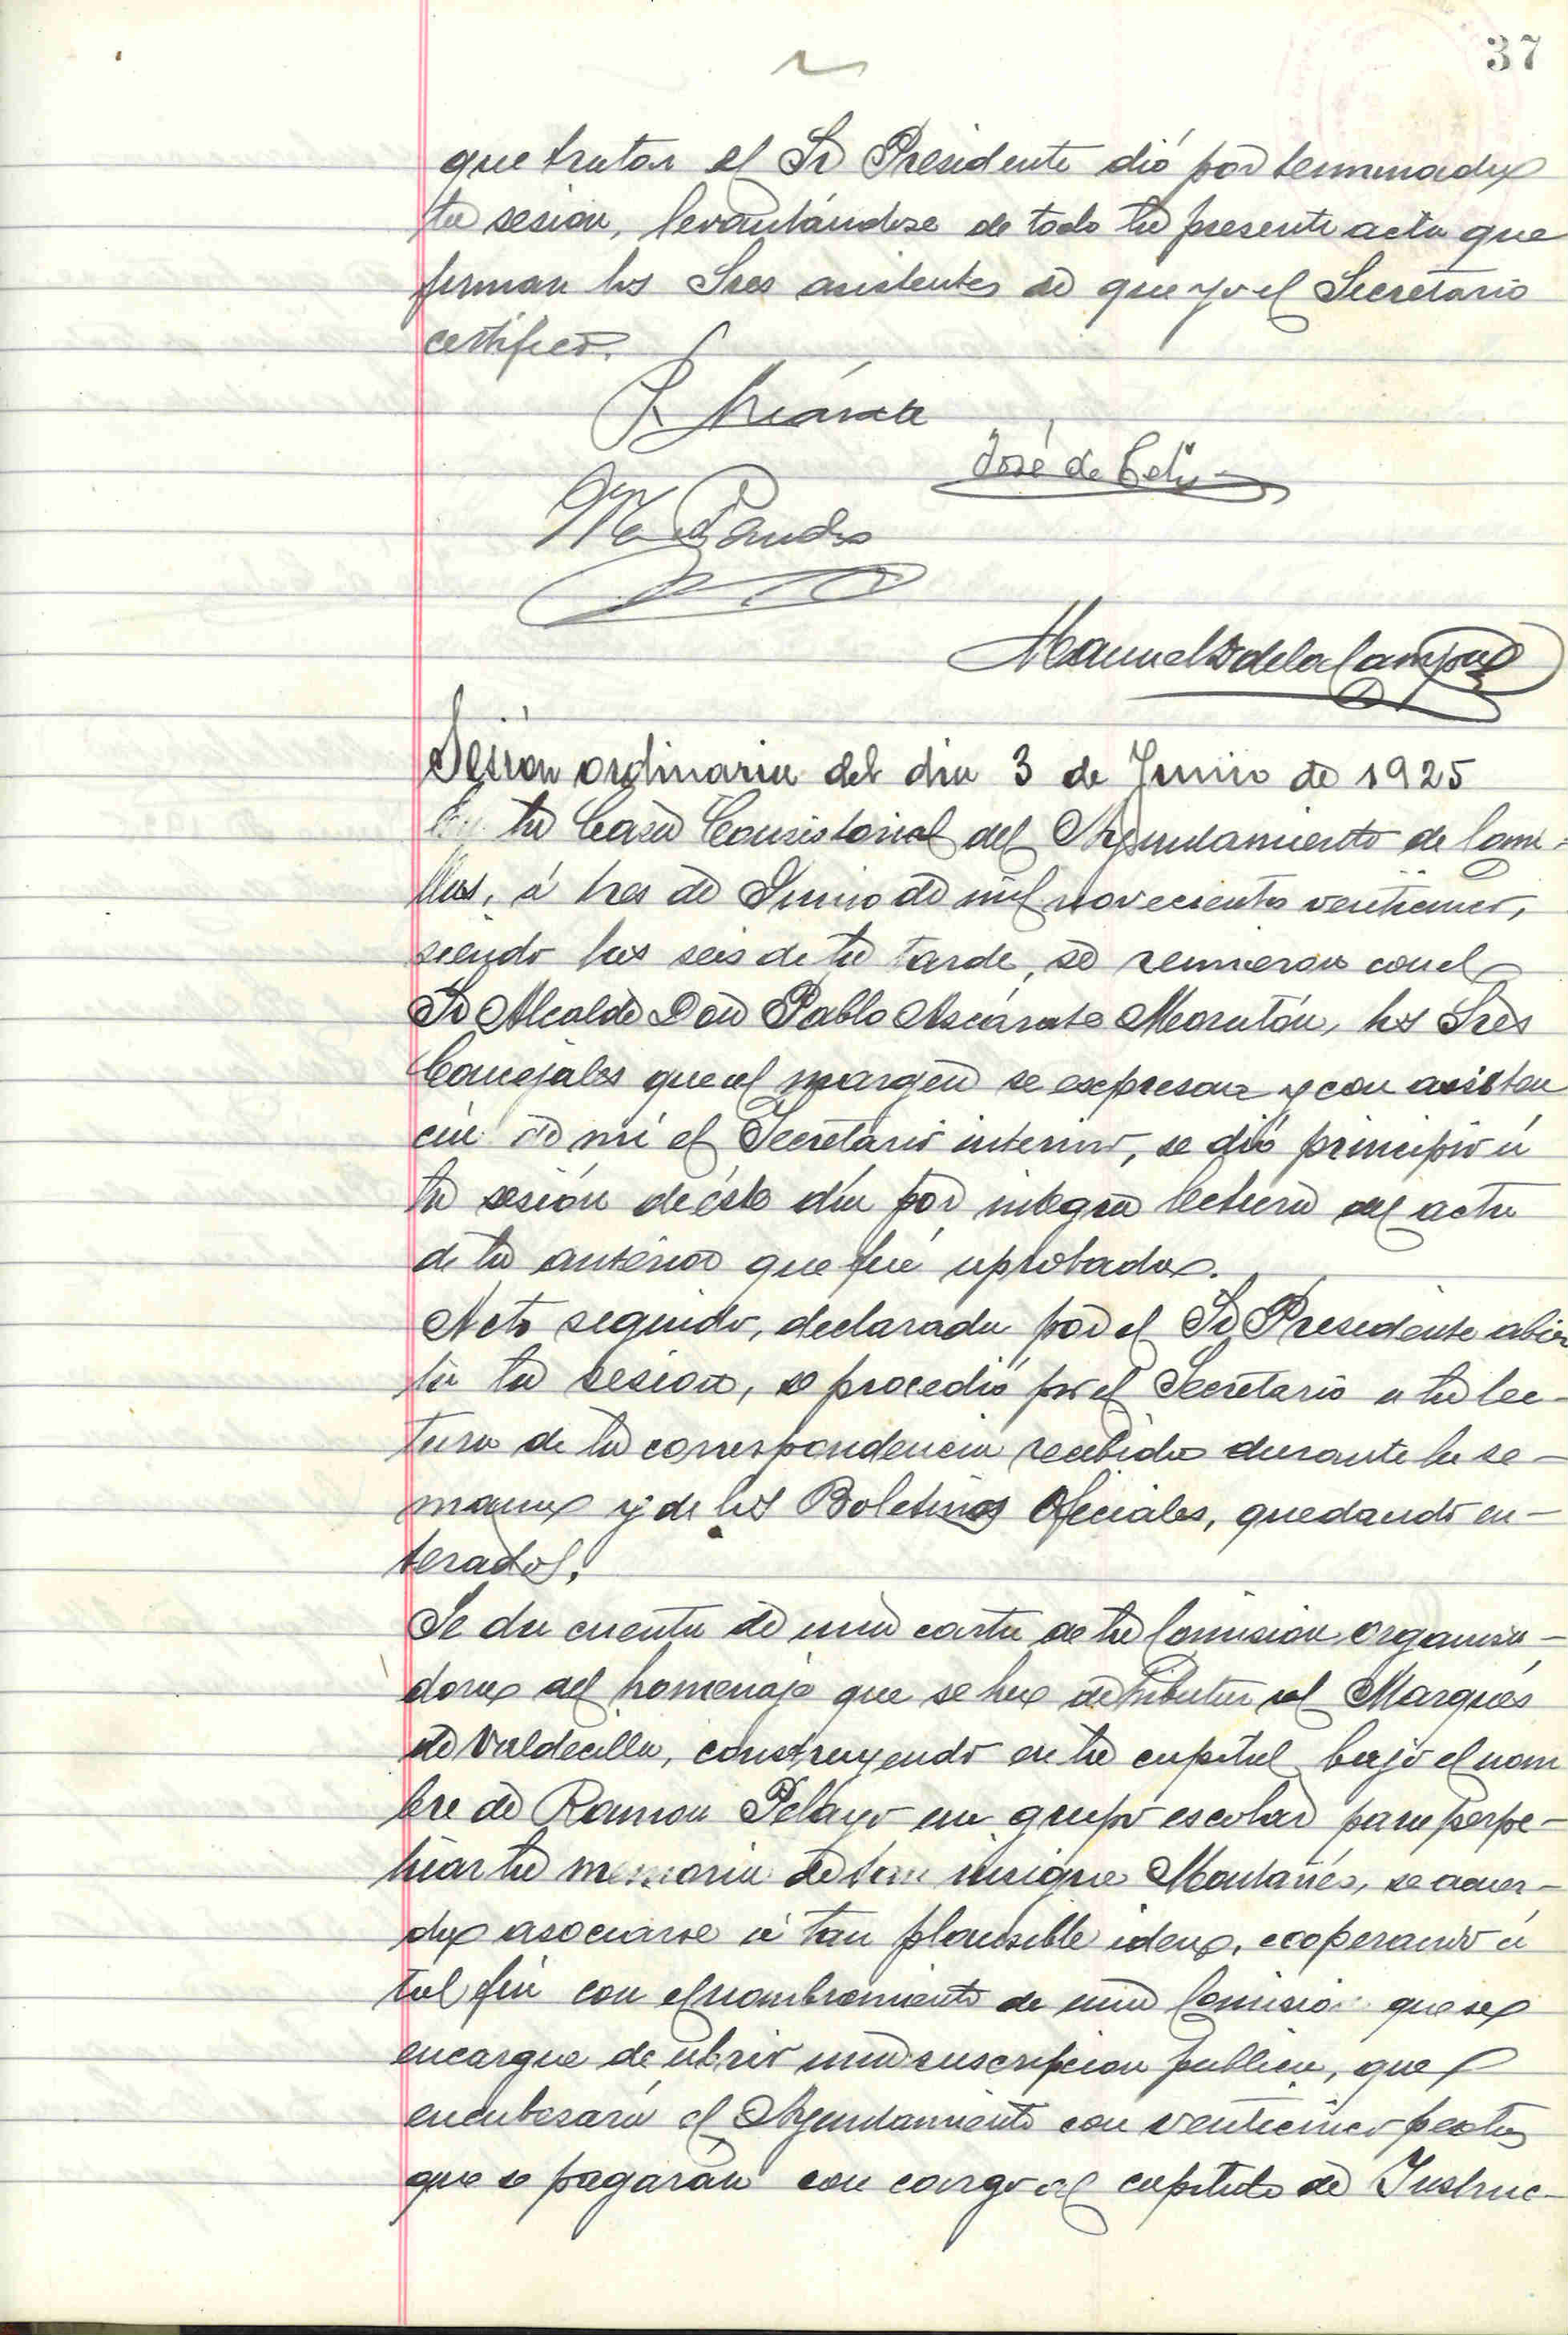 37
que tratar el Sr Presidente dió por terminada
la sesion, levantándose de todo la presente acta que
firman los Sres asistentes de que yo el Secretario
certifico.
José de Celis
Manuel de la Campa
Sesión ordinaria del dia 3 de Junio de 1925
En la Casa Consistorial del Ayuntamiento de Comi-
llas, á tres de Junio de mil novecientos venticinco,
siendo las seis de la tarde, se reunieron con el
Sr Alcalde Don Pablo Azcárate Moratón, los Sres
Concejales que al margen se expresan y con asisten
cia de mi el Secretario interino, se dió principio á
la sesión de éste día por integra lectura del acta
de la anterior que fué aprobada.
Acto seguido, declarada por el Sr Presidente abier
ta la sesion, se procedió por el Secretario a la lec-
tura de la correspondencia recibida durante la se-
mana y de los Boletines Oficiales, quedando en-
terados.
Se da cuenta de una carta de la Comision organiza-
dora del homenaje que se ha de tributar al Marqués
de Valdecilla, construyendo en la capital bajo el nom
bre de Ramon Pelayo un grupo escolar para perpe-
tuar la memoria de tan insigne Montañés, se acuer-
da asociarse á tan plausible idea, cooperando á
tal fin con el nombramiento de una Comision que se
encargue de abrir una suscripcion publica, que
encabesará el Ayuntamiento con venticinco pesetas
que se pagarán con cargo al capitulo de Instruc-